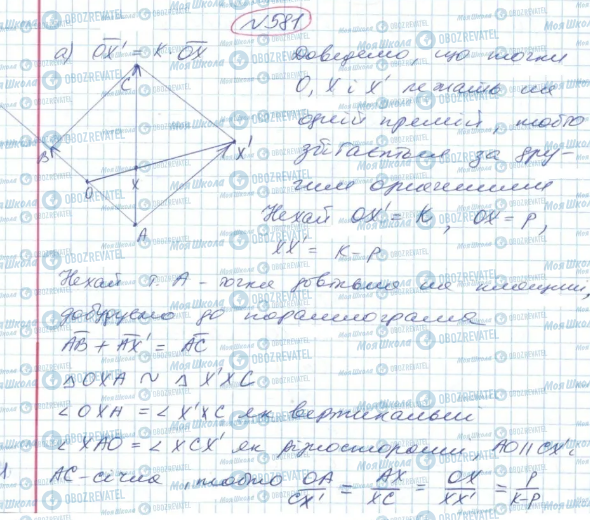 №581
а) OX' = k · OX
Доведемо, що точки
O, X і X' лежать на
одній прямій, тобто
за дру-
гим означенням
Нехай OX' = k, OX = p,
XX' = k-p
C
B
X'
O
X
A
Нехай т. A - точка довільна на площині,
добудуємо до паралелограма
AB + AX' = AC
△OXA ~ △X'XC
∠OXA = ∠X'XC як вертикальні
∠XAO = ∠XCX' як різносторонні, AO||CX' і
AC-січна, тобто OA/CX' = AX/XC = OX/XX' = p/k-p
Моя Школа
OBOZREVATEL